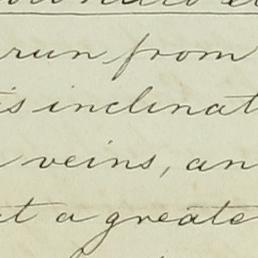 run from
is inclinat
veins, an
t a greate